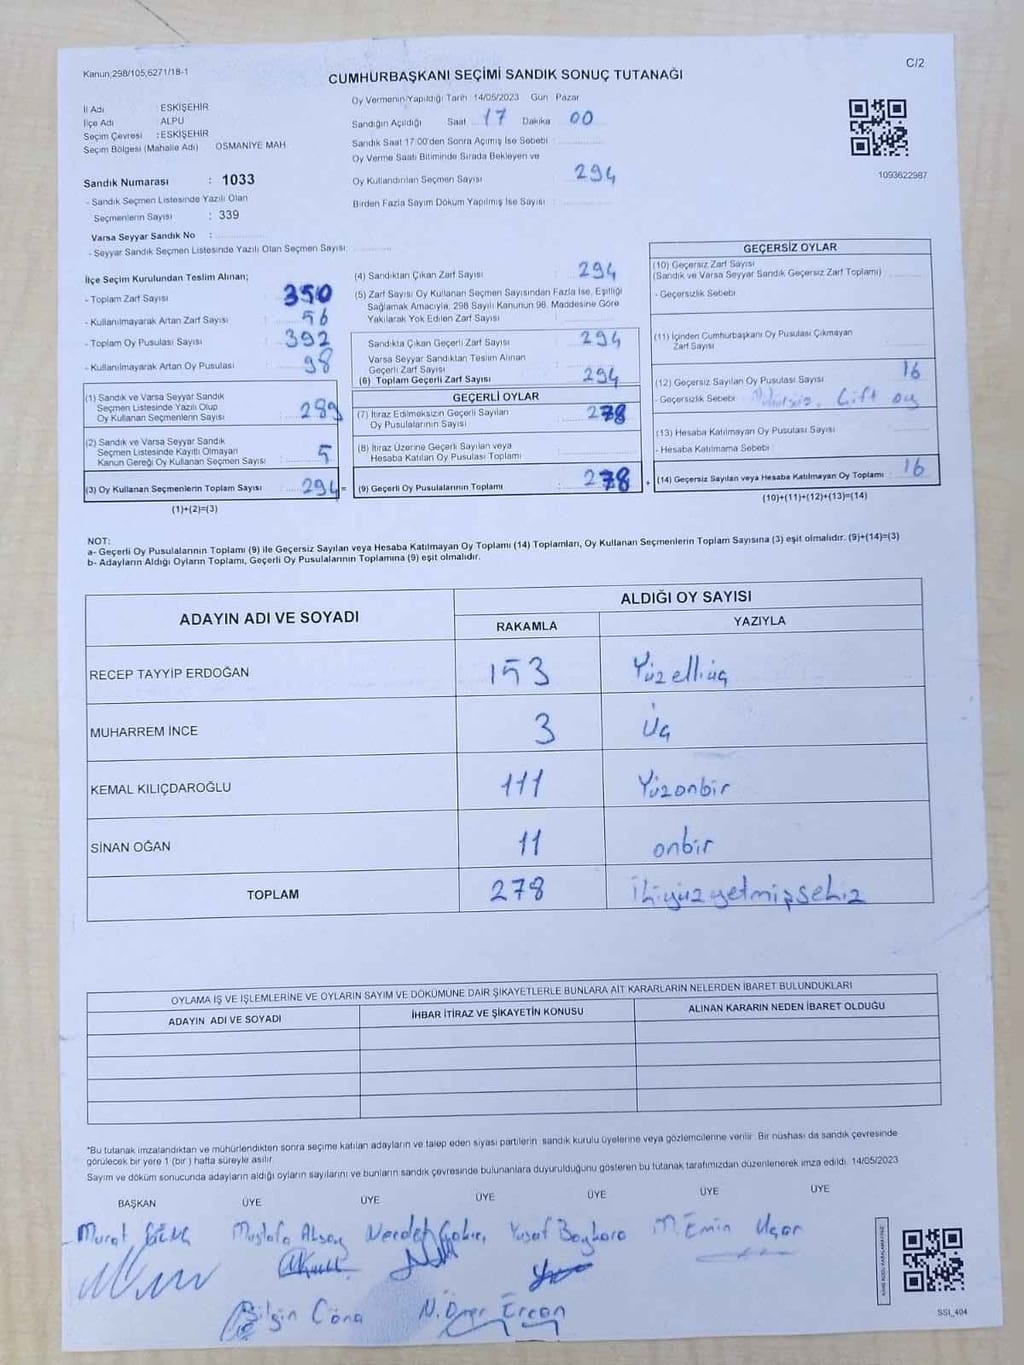 Kanun:298/105,6271/18-1
C/2
CUMHURBAŞKANI SEÇİMİ SANDIK SONUÇ TUTANAĞI
İl Adı : ESKİŞEHİR
İlçe Adı : ALPU
Seçim Çevresi : ESKİŞEHİR
Seçim Bölgesi (Mahalle Adı) OSMANİYE MAH
Sandık Numarası : 1033
- Sandık Seçmen Listesinde Yazılı Olan
Seçmenlerin Sayısı : 339
Varsa Seyyar Sandık No :
- Seyyar Sandık Seçmen Listesinde Yazılı Olan Seçmen Sayısı:
Oy Vermenin Yapıldığı Tarih 14/05/2023 Gün : Pazar
Sandığın Açıldığı Saat 17 Dakika 00
Sandık Saat 17:00'den Sonra Açımış İse Sebebi :
Oy Verme Saati Bitiminde Sırada Bekleyen ve
Oy Kullandırılan Seçmen Sayısı : 294
Birden Fazla Sayım Döküm Yapılmış İse Sayısı :
1093622987
İlçe Seçim Kurulundan Teslim Alınan;
- Toplam Zarf Sayısı : 350
- Kullanılmayarak Artan Zarf Sayısı : 56
- Toplam Oy Pusulası Sayısı : 392
- Kullanılmayarak Artan Oy Pusulası : 98
(1) Sandık ve Varsa Seyyar Sandık
Seçmen Listesinde Yazılı Olup
Oy Kullanan Seçmenlerin Sayısı : 289
(2) Sandık ve Varsa Seyyar Sandık
Seçmen Listesinde Kayıtlı Olmayan
Kanun Gereği Oy Kullanan Seçmen Sayısı : 5
(3) Oy Kullanan Seçmenlerin Toplam Sayısı : 294 =
(1)+(2)=(3)
(4) Sandıktan Çıkan Zarf Sayısı : 294
(5) Zarf Sayısı Oy Kullanan Seçmen Sayısından Fazla İse, Eşitliği
Sağlamak Amacıyla, 298 Sayılı Kanunun 98. Maddesine Göre
Yakılarak Yok Edilen Zarf Sayısı :
Sandıkta Çıkan Geçerli Zarf Sayısı : 294
Varsa Seyyar Sandıktan Teslim Alınan
Geçerli Zarf Sayısı :
(6) Toplam Geçerli Zarf Sayısı : 294
GEÇERLİ OYLAR
(7) İtiraz Edilmeksizin Geçerli Sayılan
Oy Pusulalarının Sayısı : 278
(8) İtiraz Üzerine Geçerli Sayılan veya
Hesaba Katılan Oy Pusulası Toplamı :
(9) Geçerli Oy Pusulalarının Toplamı : 278 +
GEÇERSİZ OYLAR
(10) Geçersiz Zarf Sayısı
(Sandık ve Varsa Seyyar Sandık Geçersiz Zarf Toplamı)
- Geçersizlik Sebebi
(11) İçinden Cumhurbaşkanı Oy Pusulası Çıkmayan
Zarf Sayısı
(12) Geçersiz Sayılan Oy Pusulası Sayısı : 16
- Geçersizlik Sebebi Mühürsüz, Çift oy
(13) Hesaba Katılmayan Oy Pusulası Sayısı
- Hesaba Katılmama Sebebi
(14) Geçersiz Sayılan veya Hesaba Katılmayan Oy Toplamı : 16
(10)+(11)+(12)+(13)=(14)
NOT:
a- Geçerli Oy Pusulalarının Toplamı (9) ile Geçersiz Sayılan veya Hesaba Katılmayan Oy Toplamı (14) Toplamları, Oy Kullanan Seçmenlerin Toplam Sayısına (3) eşit olmalıdır. (9)+(14)=(3)
b- Adayların Aldığı Oyların Toplamı, Geçerli Oy Pusulalarının Toplamına (9) eşit olmalıdır.
ADAYIN ADI VE SOYADI ALDIĞI OY SAYISI
RAKAMLA YAZIYLA
RECEP TAYYİP ERDOĞAN 153 Yüzelliüç
MUHARREM İNCE 3 Üç
KEMAL KILIÇDAROĞLU 111 Yüzonbir
SİNAN OĞAN 11 onbir
TOPLAM 278 ikiyüzyetmişsekiz
OYLAMA İŞ VE İŞLEMLERİNE VE OYLARIN SAYIM VE DÖKÜMÜNE DAİR ŞİKAYETLERLE BUNLARA AİT KARARLARIN NELERDEN İBARET BULUNDUKLARI
ADAYIN ADI VE SOYADI İHBAR İTİRAZ VE ŞİKAYETİN KONUSU ALINAN KARARIN NEDEN İBARET OLDUĞU
*Bu tutanak imzalandıktan ve mühürlendikten sonra seçime katılan adayların ve talep eden siyasi partilerin sandık kurulu üyelerine veya gözlemcilerine verilir. Bir nüshası da sandık çevresinde
görülecek bir yere 1 (bir) hafta süreyle asılır.
Sayım ve döküm sonucunda adayların aldığı oyların sayılarını ve bunların sandık çevresinde bulunanlara duyurulduğunu gösteren bu tutanak tarafımızdan düzenlenerek imza edildi. 14/05/2023
BAŞKAN ÜYE ÜYE ÜYE ÜYE ÜYE ÜYE
Murat GENÇ Mustafa Aksoy Necdet Yusuf Baykara M. Emin Uçar
Bilgin N. Ömer Ercan
SSI_404